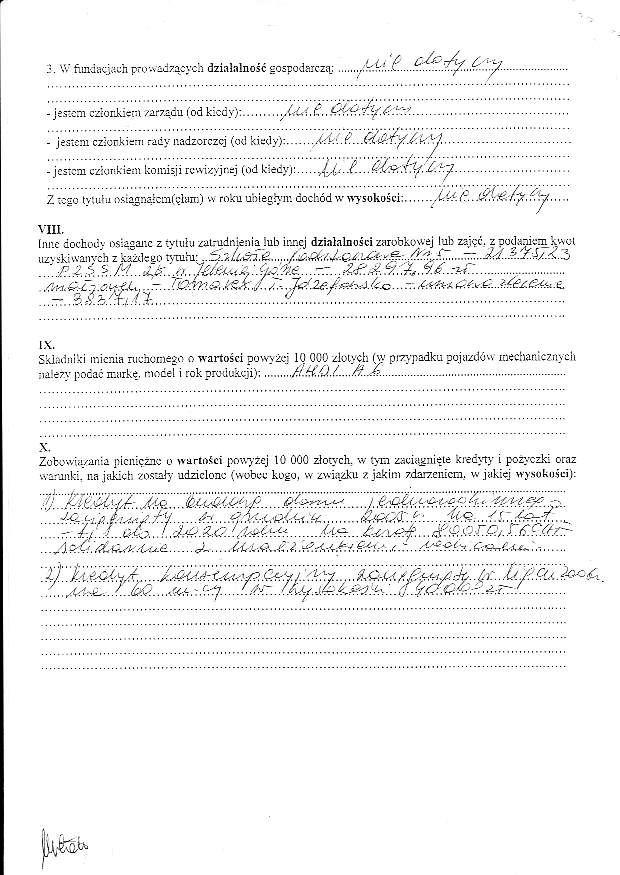 3. W fundacjach prowadzących działalność gospodarczą: nie dotyczy
- jestem członkiem zarządu (od kiedy): nie dotyczy
- jestem członkiem rady nadzorczej (od kiedy): nie dotyczy
- jestem członkiem komisji rewizyjnej (od kiedy): nie dotyczy
Z tego tytułu osiągnąłem(ęłam) w roku ubiegłym dochód w wysokości: nie dotyczy
VIII.
Inne dochody osiągane z tytułu zatrudnienia lub innej działalności zarobkowej lub zajęć, z podaniem kwot
uzyskiwanych z każdego tytułu: Szkoła Podstawowa Nr 5 – 21375,23
w Jeleniej Górze – 28297,96 zł
– umowa zlecenie
– 3837,17
IX.
Składniki mienia ruchomego o wartości powyżej 10 000 złotych (w przypadku pojazdów mechanicznych
należy podać markę, model i rok produkcji): AUDI A6
X.
Zobowiązania pieniężne o wartości powyżej 10 000 złotych, w tym zaciągnięte kredyty i pożyczki oraz
warunki, na jakich zostały udzielone (wobec kogo, w związku z jakim zdarzeniem, w jakiej wysokości):
1) kredyt na budowę domu jednorodzinnego –
zaciągnięty w grudniu 2005 r. na 15 lat
– tj. do 2020 roku na kwotę 80050,56 CHF
solidarnie z małżonkiem
2) kredyt konsumpcyjny zaciągnięty w lipcu 2006r.
na 60 m-cy w wysokości zł